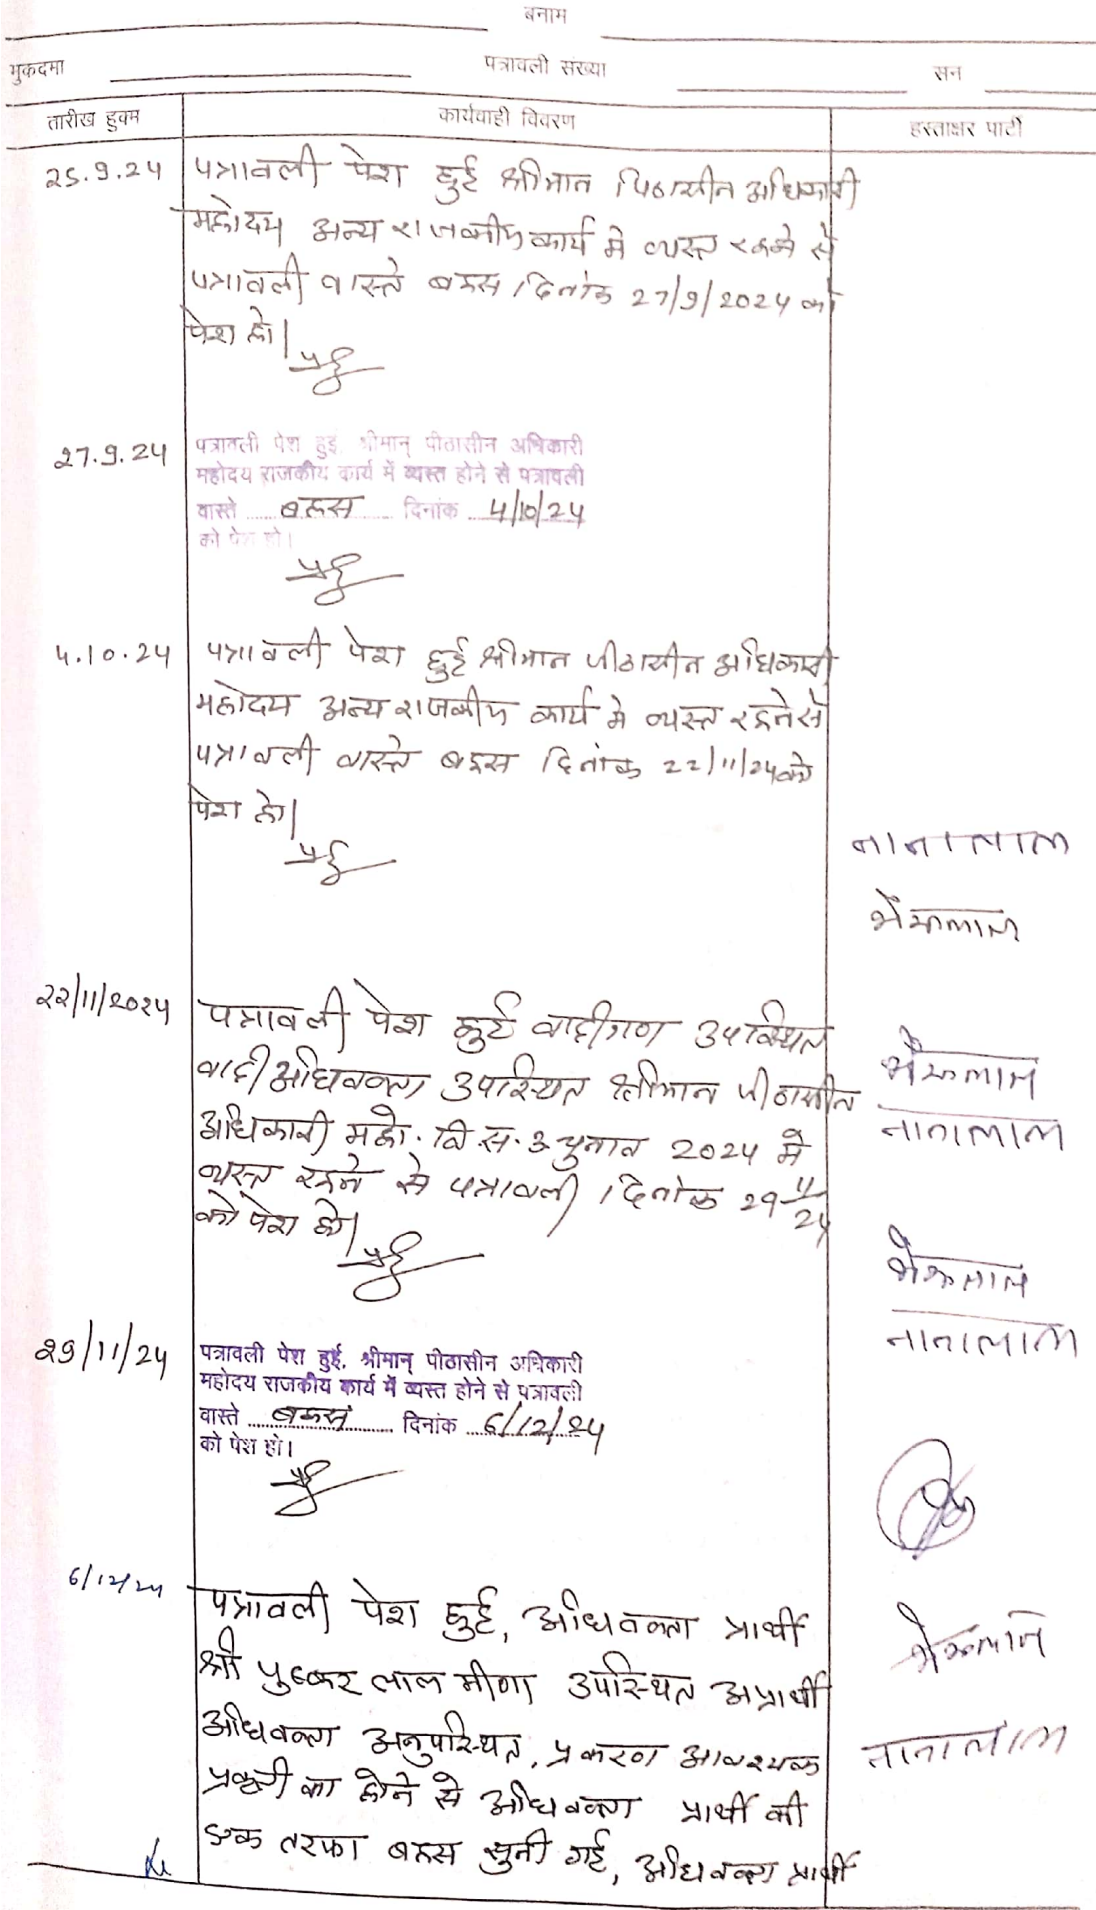 बनाम
मुकदमा पत्रावली संख्या सन
तारीख हुक्म कार्यवाही विवरण हस्ताक्षर पार्टी
25.9.24 पत्रावली पेश हुई श्रीमान पिठासीन अधिकारी
महोदय अन्य राजकीय कार्य मे व्यस्त रहने से
पत्रावली वास्ते बहस दिनांक 27/9/2024 को
पेश हो।
27.9.24 पत्रावली पेश हुई. श्रीमान् पीठासीन अधिकारी
महोदय राजकीय कार्य में व्यस्त होने से पत्रावली
वास्ते बहस दिनांक 4/10/24
को पेश हो।
4.10.24 पत्रावली पेश हुई श्रीमान पीठासीन अधिकारी
महोदय अन्य राजकीय कार्य मे व्यस्त रहने से
पत्रावली वास्ते बहस दिनांक 22/11/24 को
पेश हो।
नानालाल
भैरूलाल
22/11/2024 पत्रावली पेश हुई वादीगण उपस्थित
वादी अधिवक्ता उपस्थित श्रीमान पीठासीन भैरूलाल
अधिकारी महो. वि.स. चुनाव 2024 मे नानालाल
व्यस्त रहने से पत्रावली दिनांक 29 11/24
को पेश हो।
भैरूलाल
नानालाल
29/11/24 पत्रावली पेश हुई. श्रीमान् पीठासीन अधिकारी
महोदय राजकीय कार्य में व्यस्त होने से पत्रावली
वास्ते बहस दिनांक 6/12/24
को पेश हो।
6/12/24 पत्रावली पेश हुई, अधिवक्ता प्रार्थी
श्री पुष्कर लाल मीणा उपस्थित अप्रार्थी भैरूलाल
अधिवक्ता अनुपस्थित, प्रकरण आवश्यक नानालाल
प्रकृती का होने से अधिवक्ता प्रार्थी की
एक तरफा बहस सुनी गई, अधिवक्ता प्रार्थी